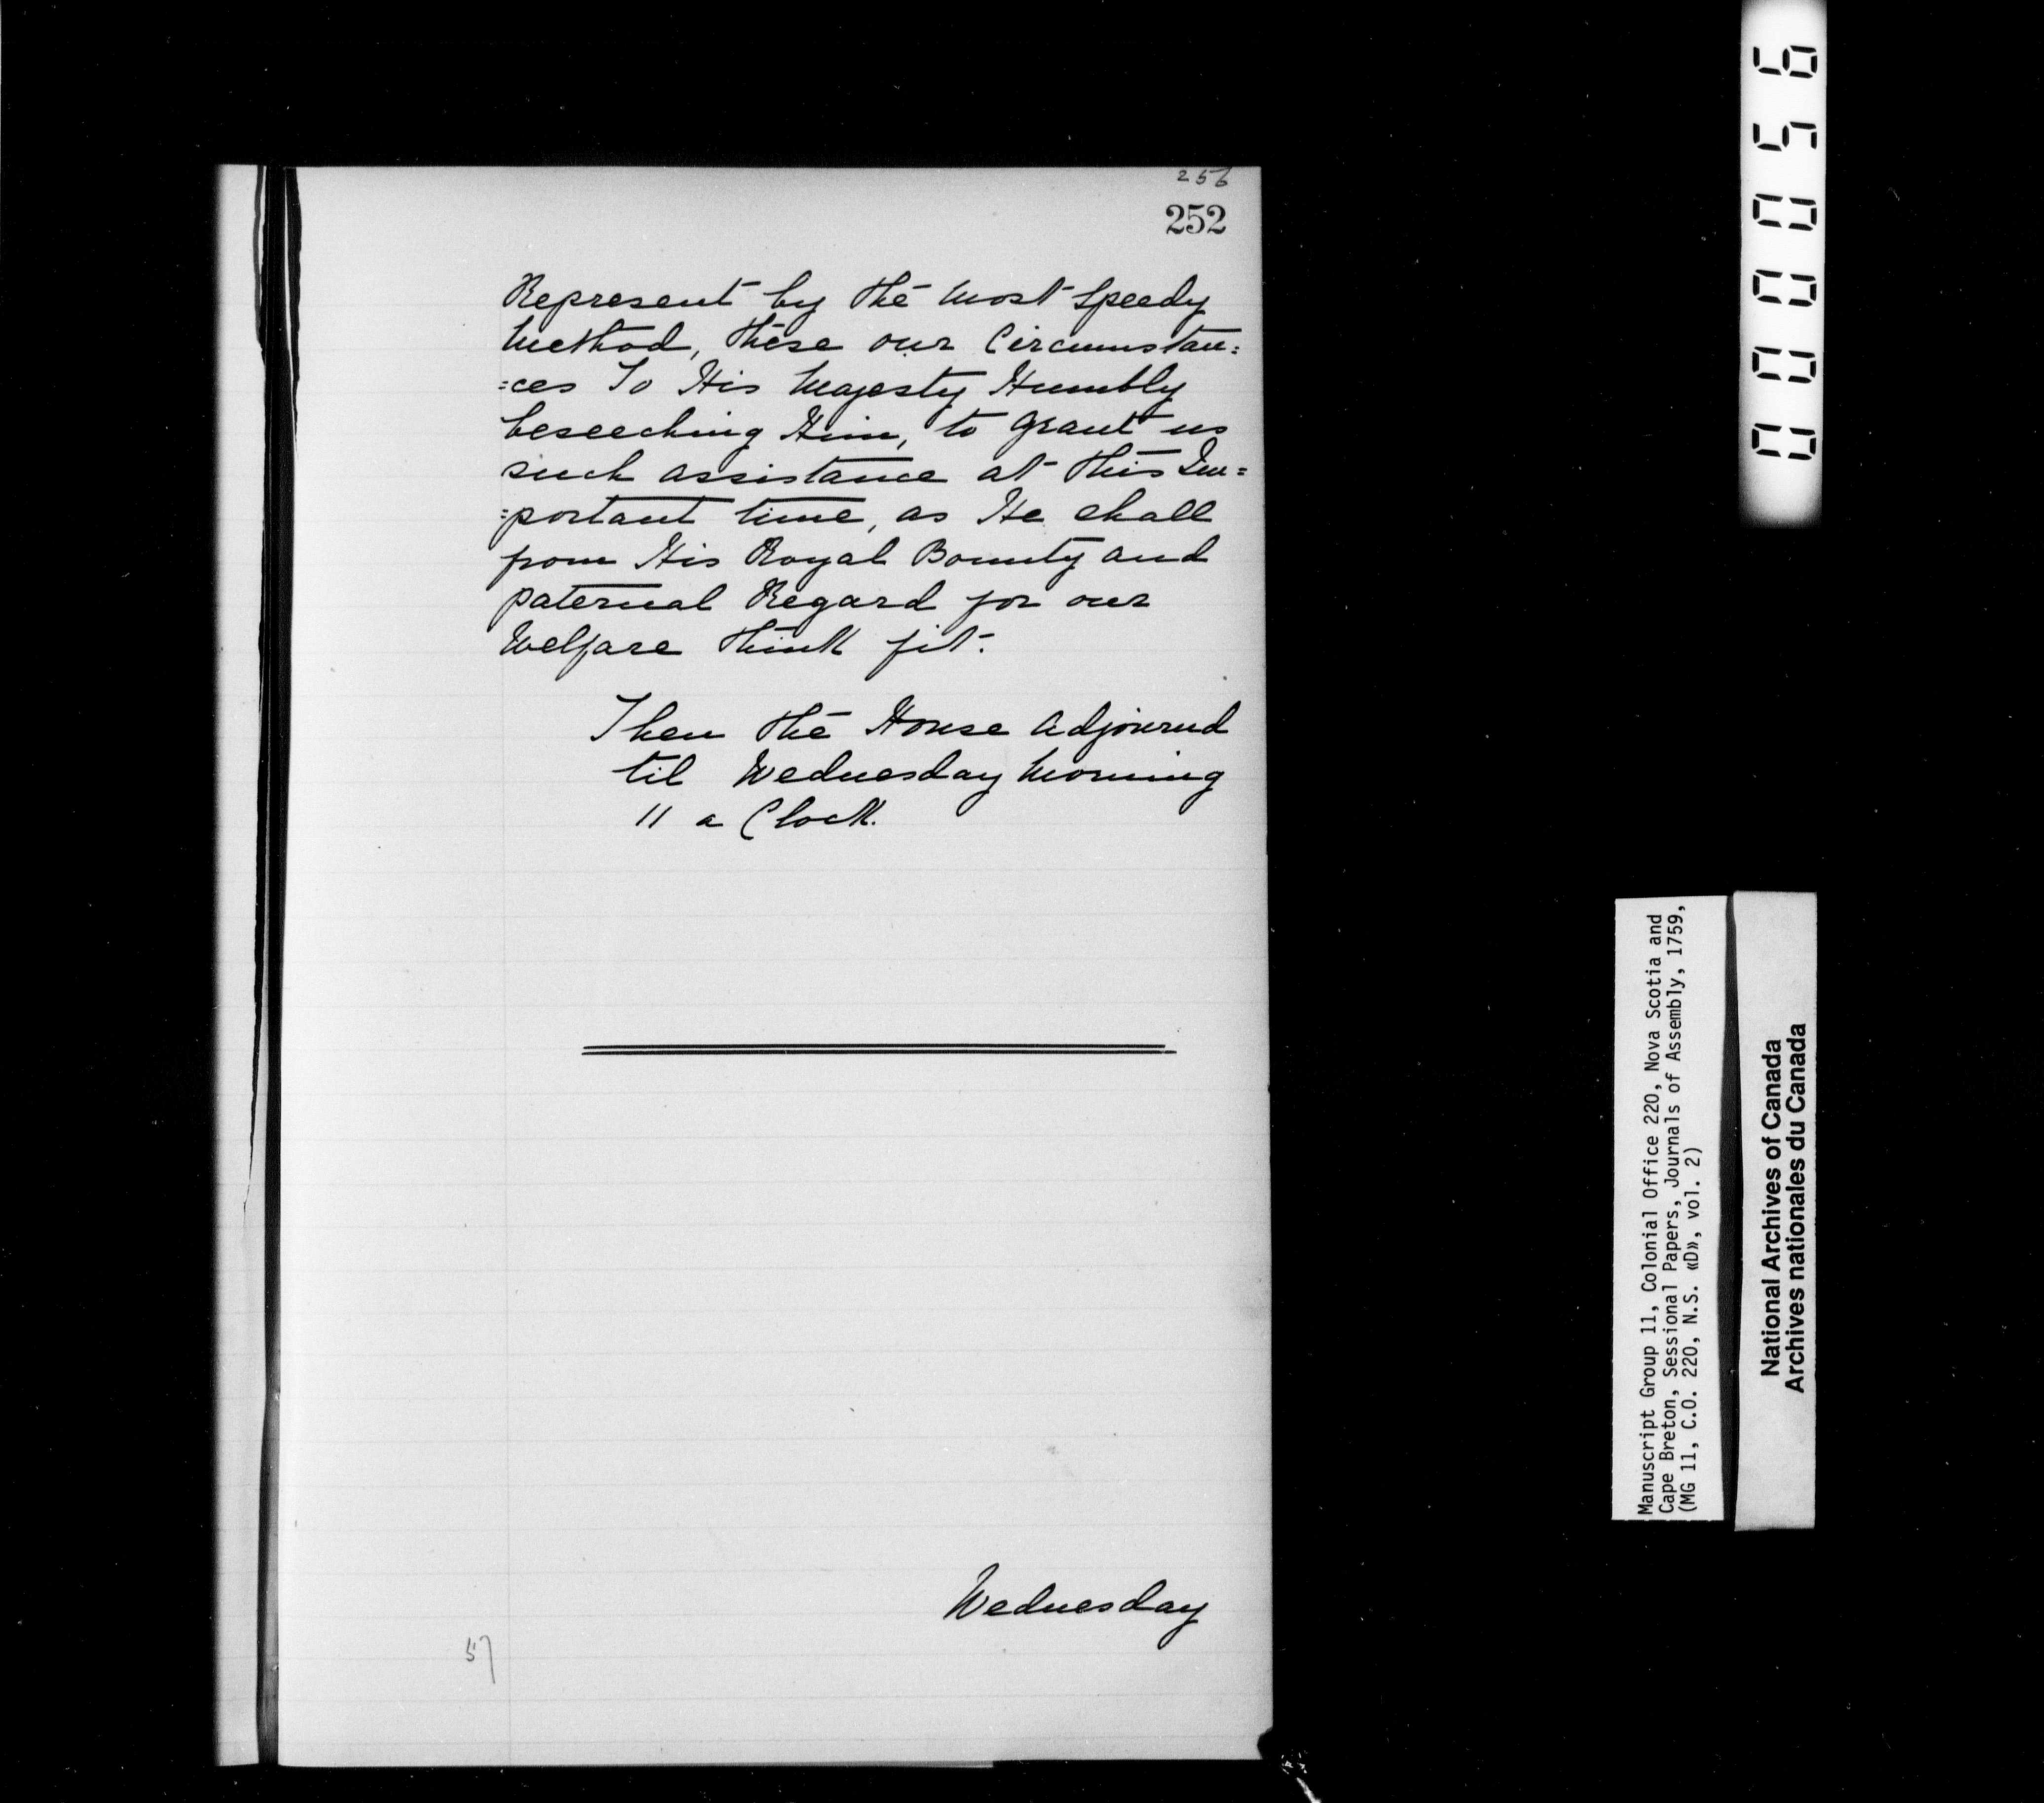 256
252
Represent by the most speedy
method, these our Circumstan=
=ces To His Majesty Humbly
beseeching Him, to grant us
such assistance at this Im=
=portant time, as He shall
from His Royal Bounty and
paternal Regard for our
Welfare think fit.
Then the House adjournd
til Wednesday morning
11 a Clock.
Wednesday
57
000056
Manuscript Group 11, Colonial Office 220, Nova Scotia and
Cape Breton, Sessional Papers, Journals of Assembly, 1759,
(MG 11, C.O. 220, N.S. «D», vol. 2)
National Archives of Canada
Archives nationales du Canada